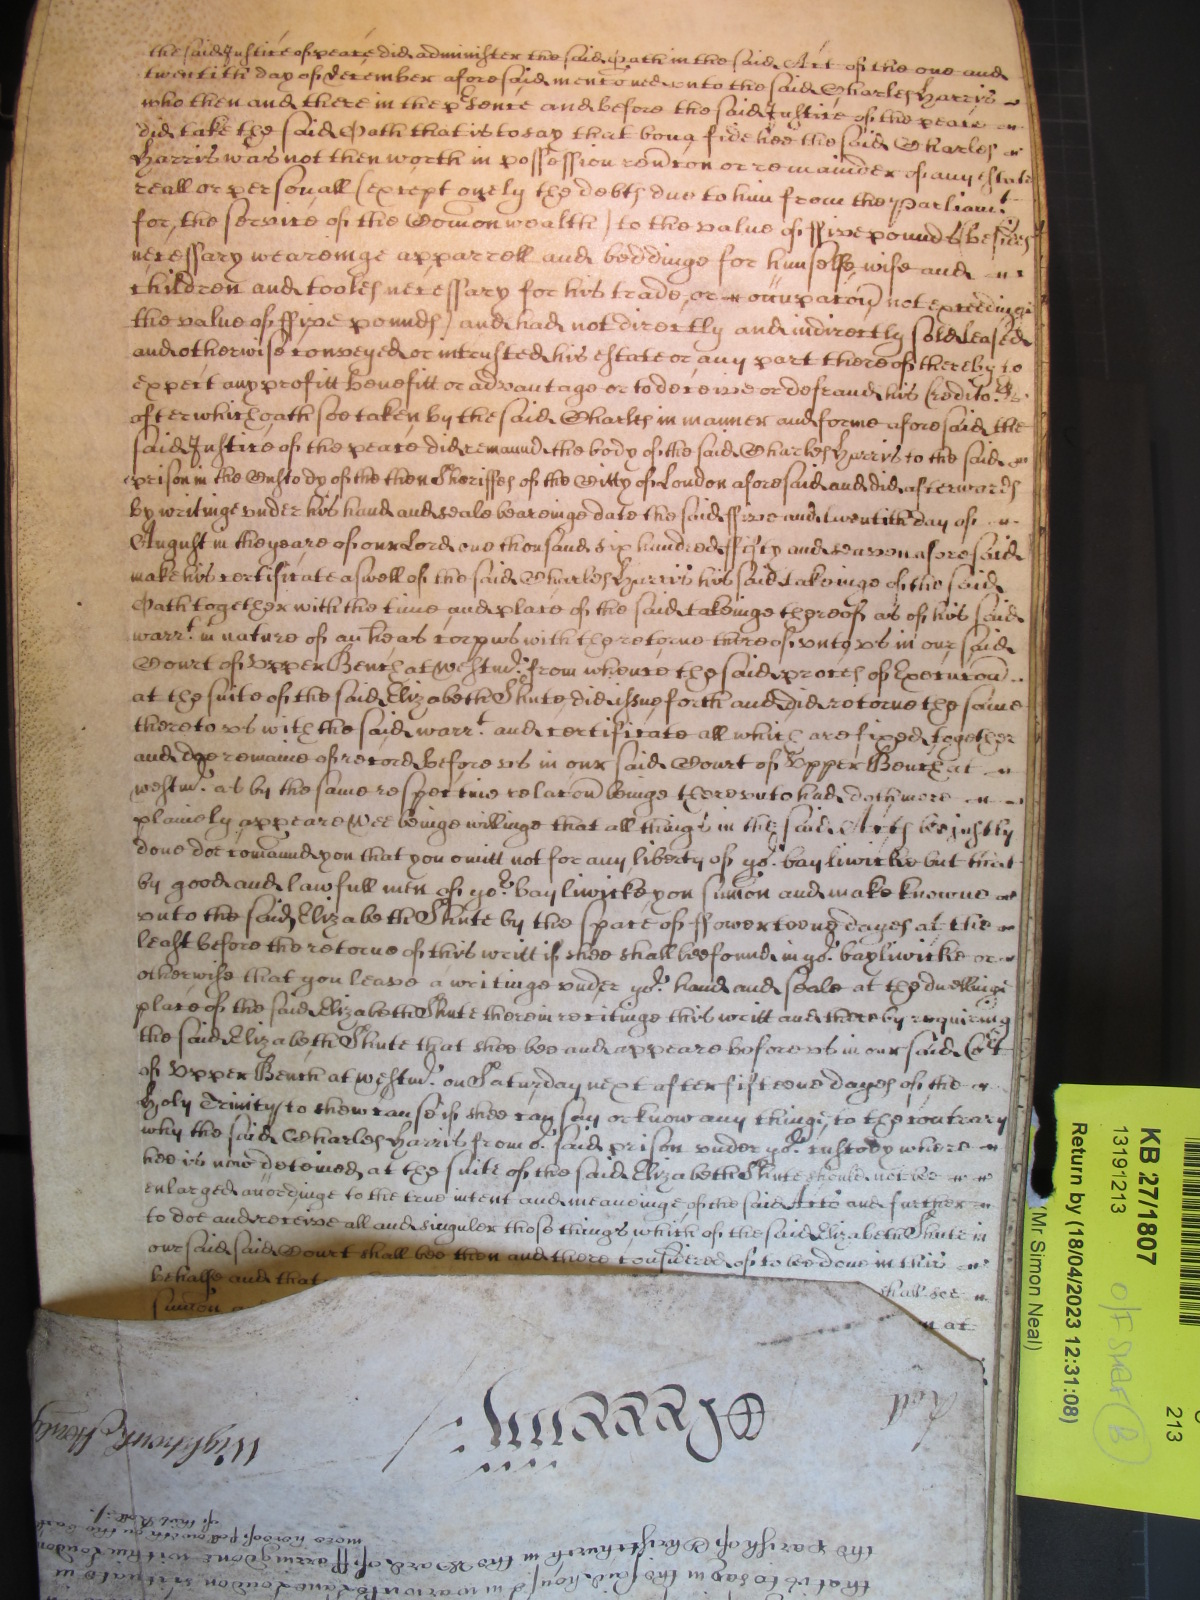 the said Justice of peace did administer the said Oath in the said Act of the one and
twentith day of December aforesaid mencõned unto the said Charles Harris
who then and there in the p'sence and before the said Justice of the peace
did take the said Oath that is to say that bona fide hee the said Charles
Harris was not then worth in possession revercõn or remainder of any estate
reall or personall (except onely the debts due to him from the Parliamt.
for the service of the Comonwealth) to the value of ffive pounds (besides
necessary weareinge apparrell and beddinge for himselfe wife and
children and tooles necessary for his trade, or occupacõn not exceedinge
the value of ffive pounds) and had not directly and indirectly sold leased
and otherwise conveyed or intrusted his estate or any part thereof thereby to
expect any profitt benefitt or advantage or to deceive or defraud his Creditors
after which oath soe taken by the said Charles in manner and forme aforesaid the
said Justice of the peace did remaund the body of the said Charles Harris to the said
prison in the Custody of the then Sheriffes of the Citty of London aforesaid and did afterwards
by writinge under his hand and seale beareinge date the said ffive and twentith day of
August in the yeare of our Lord one thousand six hundred ffifty and seaven aforesaid
make his certificate aswell of the said Charles Harris his said takeinge of the said
Oath together with the time and place of the said takeinge thereof as of his said
warrt. in nature of an heas corpus with the retorne thereof unto us in our said
Court of Upper Bench at Westmr. from whence the said proces of Execucõn
at the suite of the said Elizabeth Shute did issue forth and did retorne the same
thereto us with the said warrt. and certificate all which are fixed together
and doe remaine of record before us in our said Court of Upper Bench at
Westmr. as by the same respective relacõn beinge thereunto had doth more
plainely appeare Wee beinge willinge that all things in the said Acts bee justly
done doe comaund you that you omitt not for any liberty of yor. bayliwicke but that
by good and lawfull men of yor. bayliwicke you sumon and make knowne
unto the said Elizabeth Shute by the space of ffowerteene dayes at the
least before the retorne of this writt if shee shall bee found in yor. bayliwicke or
otherwise that you leave a writinge under yor. hand and seale at the dwellinge
place of the said Elizabeth Shute therein reciteinge this writt and thereby requiring
the said Elizabeth Shute that shee bee and appeare before us in our said Cort
of Upper Bench at Westmr. on Saturday next after fifteene dayes of the
Holy Trinity, to shew cause if shee can say or know any thinge, to the contrary
why the said Charles Harris from or. said prison under yor. custody where
hee is now deteined at the suite of the said Elizabeth Shute should not bee
enlarged accordinge to the true intent and meaneinge of the said Acts and further
to doe and receive all and singuler those things which of the said Elizabeth Shute in
our said said Court shall bee then and there considered of to bee done in this
behalfe and that shall see
sumon
at
Roll
Wightwick Henly
more hereof followeth on the back
of this Roll
the parish of Christchurch in the Ward of ffarringdon within London
that is to say in the said house in warwicke lane London scituate in
KB 27/1807
13191213
off sheet B
Return by (18/04/2023 12:31:08)
(Mr Simon Neal)
213